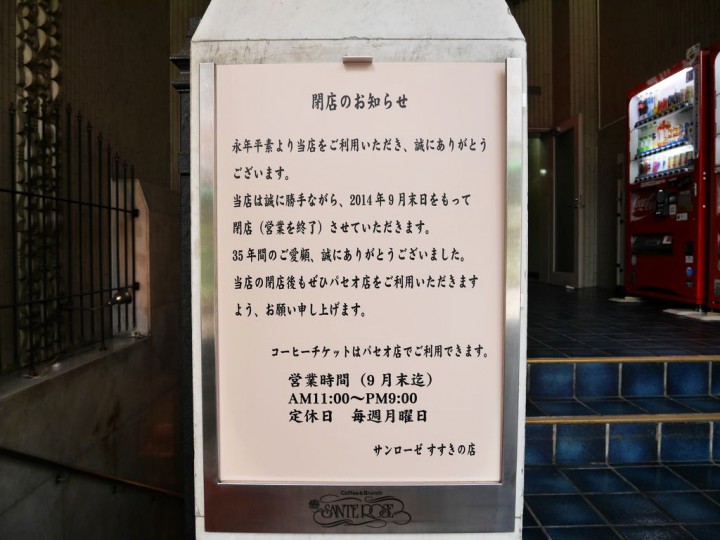 閉店のお知らせ
永年平素より当店をご利用いただき、誠にありがとう
ございます。
当店は誠に勝手ながら、2014年9月末日をもって
閉店（営業を終了）させていただきます。
35年間のご愛顧、誠にありがとうございました。
当店の閉店後もぜひパセオ店をご利用いただきます
よう、お願い申し上げます。
コーヒーチケットはパセオ店でご利用できます。
営業時間（9月末迄）
AM11:00〜PM9:00
定休日　毎週月曜日
サンローゼ すすきの店
Coffee&Brunch
SANTE ROSE
Coca-Cola